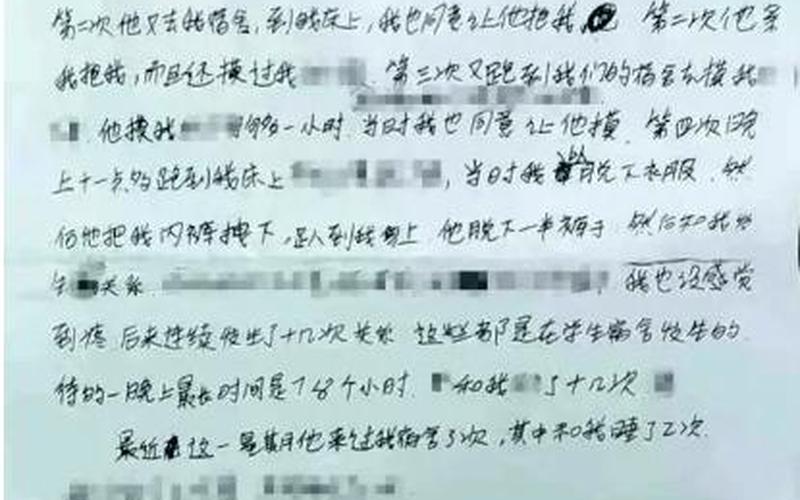 第二次他又去我宿舍,到我床上,我也同意让他把我 第二次他亲
我抱我,而且还摸过我 第三次又跑到我们的宿舍去摸我
他摸我 约一小时 当时我也同意让他摸 第四次晚
上十一点多跑到我床上 ,当时我 脱下衣服 然
后他把我内裤拽下,趴到我身上 他脱下一半裤子 然后和我发
生 关系 我也没感觉
到疼 后来连续发生了十几次关系 这些都是在学生宿舍发生的
待的一晚上最长时间是7 8个小时 和我 了十几次
最近 这一星期他来过我宿舍3次,其中和我睡了2次